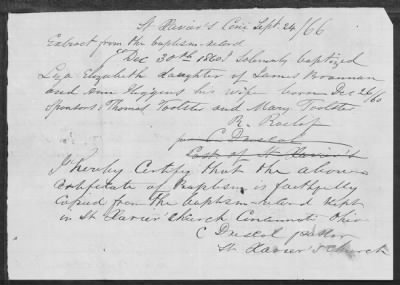 St Xavier's Cinci Sept. 24/66
Extract from the baptism-record
"Dec 30th 1860 I Solemnly baptized
Liza Elizabeth daughter of James Brannan
and Ann Higgins his wife born Dec 26/60
Sponsors: Thomas Tootster and Mary Tootster
R.
C Driscol
of St Xavier's
I hereby Certify that the above
Certificate of Baptism is faithfully
Copied from the baptism-record kept
in St Xavier's Church Cincinnati Ohio
C Driscol pastor
St Xavier's Church